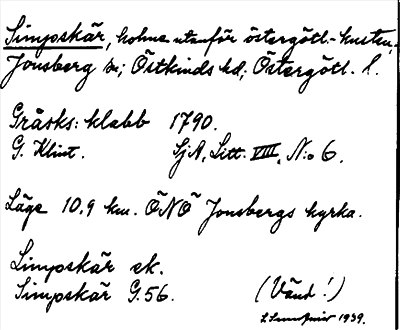 Simpskär, holme utanför östergötl.-kusten,
Jonsberg sn; Östkinds hd; Östergötl. l.
Gräsks: klabb 1790.
G. Klint. SjA, Litt. VIII, N:o 6.
Läge 10,9 km. ÖNÖ Jonsbergs kyrka.
Limpskär ek.
Simpskär G.56. (Vänd!)
1939.